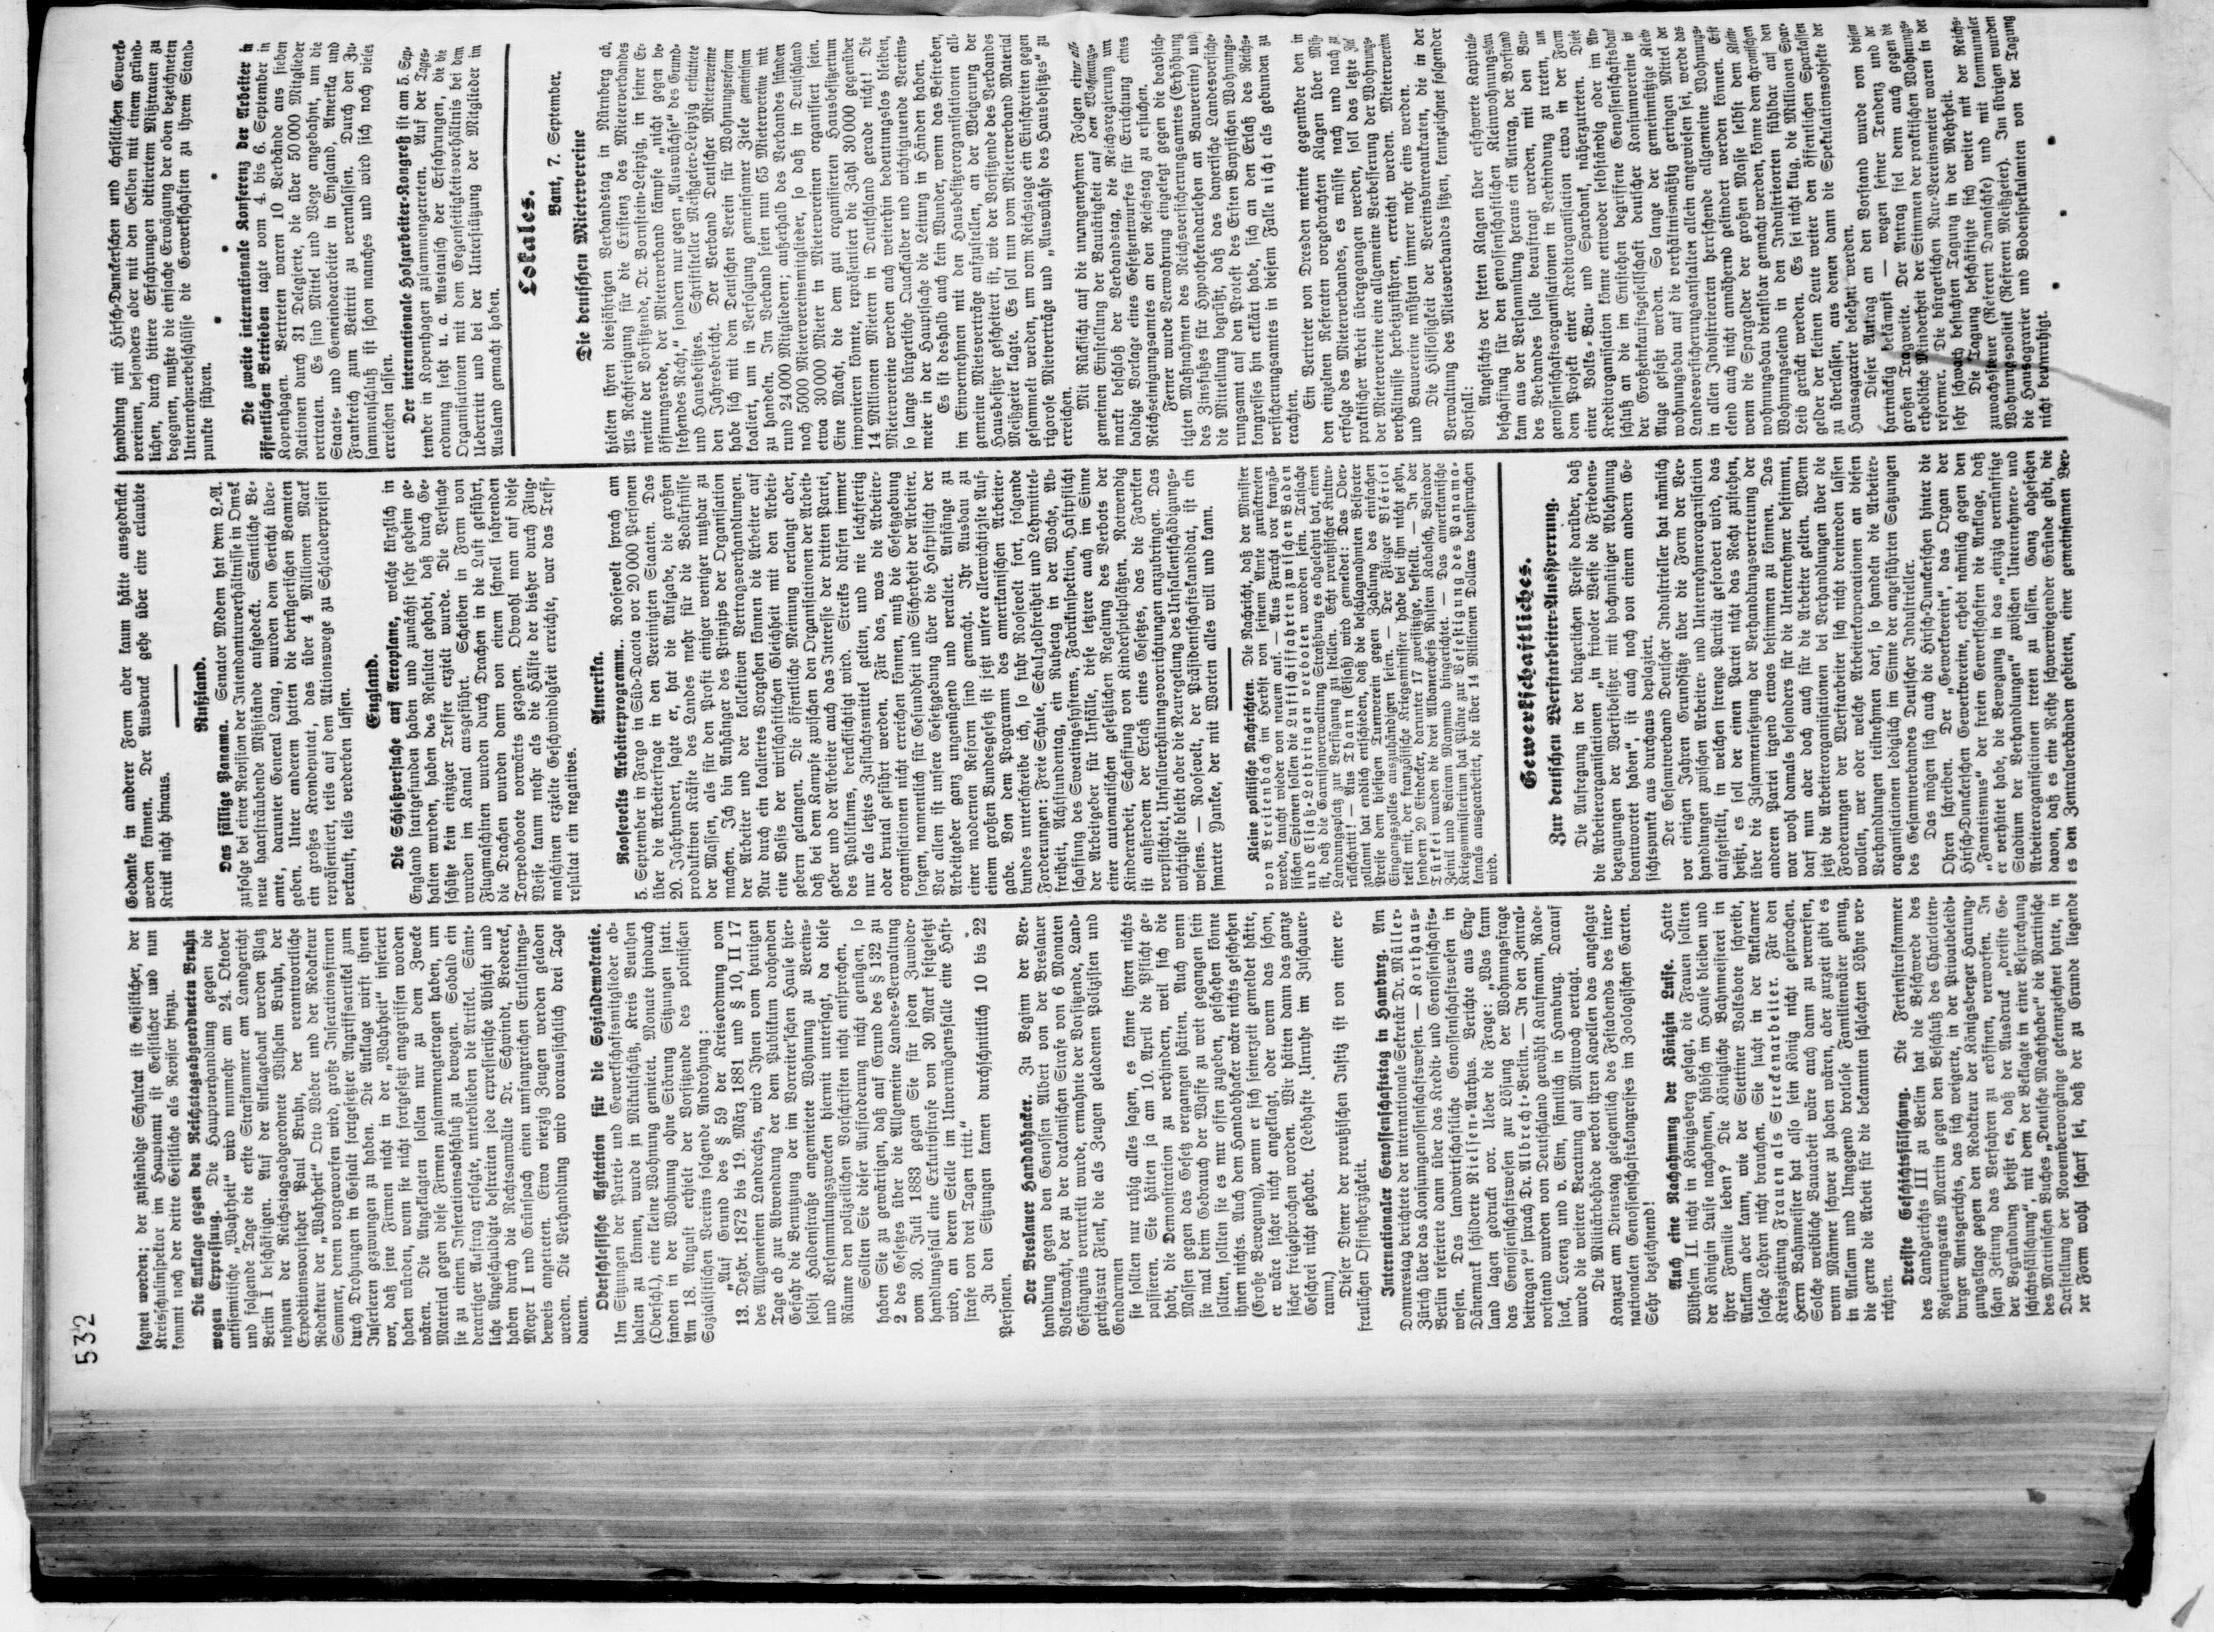 532
segnet worden; der zuständige Schulrat ist Geistlicher, der
Kreisschulinspektor im Hauptamt ist Geistlicher und nun
kommt noch der dritte Geistliche als Revisor hinzu.
Die Anklage gegen den Reichstagsabgeordneten Bruhn
wegen Erpressung. Die Hauptverhandlung gegen die
antisemitische „Wahrheit“ wird nunmehr am 24. Oktober
und folgende Tage die erste Strafkammer am Landgericht
Berlin I beschäftigen. Auf der Anklagebank werden Platz
nehmen der Reichstagsabgeordnete Wilhelm Bruhn, der
Expeditionsvorsteher Paul Bruhn, der verantwortliche
Redakteur der „Wahrheit“ Otto Weber und der Redakteur
Sommer, denen vorgeworfen wird, große Inserationsfirmen
durch Drohungen in Gestalt fortgesetzter Angriffsartikel zum
Inserieren gezwungen zu haben. Die Anklage wirft ihnen
vor, daß jene Firmen nicht in der „Wahrheit“ inseriert
haben würden, wenn sie nicht fortgesetzt angegriffen worden
wären. Die Angeklagten sollen nur zu dem Zwecke
Material gegen diese Firmen zusammengetragen haben, um
sie zu einem Inserationsabschluß zu bewegen. Sobald ein
derartiger Auftrag erfolgte, unterblieben die Artikel. Sämt-
liche Angeschuldigte bestreiten jede erpresserische Absicht und
haben durch die Rechtsanwälte Dr. Schwindt, Bredereck,
Meyer I und Grünspach einen umfangreichen Entlastungs-
beweis angetreten. Etwa vierzig Zeugen werden geladen
werden. Die Verhandlung wird voraussichtlich drei Tage
dauern.
Oberschlesische Agitation für die Sozialdemokratie.
Um Sitzungen der Partei- und Gewerkschaftsmitglieder ab-
halten zu können, wurde in Mikultschütz, Kreis Beuthen
(Oberschl.), eine kleine Wohnung gemietet. Monate hindurch
fanden in der Wohnung ohne Störung Sitzungen statt.
Am 18. August erhielt der Vorsitzende des polnischen
Sozialistischen Vereins folgende Androhung:
„Auf Grund des § 59 der Kreisordnung vom
13. Dezbr. 1872 bis 19. März 1881 und § 10, II 17
des Allgemeinen Landrechts, wird Ihnen vom heutigen
Tage ab zur Abwendung der dem Publikum drohenden
Gefahr die Benutzung der im Vorreiterschen Hause hier-
selbst Haldenstraße angemietete Wohnung zu Vereins-
und Versammlungszwecken hiermit untersagt, da diese
Räume den polizeilichen Vorschriften nicht entsprechen.
Sollten Sie dieser Aufforderung nicht genügen, so
haben Sie zu gewärtigen, daß auf Grund des § 132 zu
2 des Gesetzes über die Allgemeine Landes-Verwaltung
vom 30. Juli 1883 gegen Sie für jeden Zuwider-
handlungsfall eine Exekutivstrafe von 30 Mark festgesetzt
wird, an deren Stelle im Unvermögensfalle eine Haft-
strafe von drei Tagen tritt.“
Zu den Sitzungen kamen durchschnittlich 10 bis 22
Personen.
Der Breslauer Handabhacker. Zu Beginn der Ver-
handlung gegen den Genossen Albert von der Breslauer
Volkswacht, der zu der drakonischen Strafe von 6 Monaten
Gefängnis verurteilt wurde, ermahnte der Vorsitzende, Land-
gerichtsrat Flenk, die als Zeugen geladenen Polizisten und
Gendarmen
sie sollten nur ruhig alles sagen, es könne ihnen nichts
passieren. Sie hätten ja am 10. April die Pflicht ge-
habt, die Demonstration zu verhindern, weil sich die
Massen gegen das Gesetz vergangen hätten. Auch wenn
sie mal beim Gebrauch der Waffe zu weit gegangen sein
sollten, sollten sie es nur offen zugeben, geschehen könne
ihnen nichts. Auch dem Handabhacker wäre nichts geschehen
(Große Bewegung), wenn er sich seinerzeit gemeldet hätte,
er wäre sicher nicht angeklagt, oder wenn das schon,
sicher freigesprochen worden. Wir hätten dann das ganze
Geschrei nicht gehabt. (Lebhafte Unruhe im Zuschauer-
raum.)
Dieser Diener der preußischen Justiz ist von einer er-
freulichen Offenherzigkeit.
Internationaler Genossenschaftstag in Hamburg. Am
Donnerstag berichtete der internationale Sekretär Dr. Müller-
Zürich über das Konsumgenossenschaftswesen. — Korthaus-
Berlin referierte dann über das Kredit- und Genossenschafts-
wesen. Das landwirtschaftliche Genossenschaftswesen in
Dänemark schilderte Nielsen-Aarhus. Berichte aus Eng-
land lagen gedruckt vor. Ueber die Frage: „Was kann
das Genossenschaftswesen zur Lösung der Wohnungsfrage
beitragen?“ sprach Dr. Albrecht-Berlin. — In den Zentral-
vorstand wurden von Deutschland gewählt Kaufmann, Rade-
stock, Lorenz und v. Elm, sämtlich in Hamburg. Darauf
wurde die weitere Beratung auf Mittwoch vertagt.
Die Militärbehörde verbot ihren Kapellen das angesagte
Konzert am Dienstag gelegentlich des Festabends des inter-
nationalen Genossenschaftskongresses im Zoologischen Garten.
Sehr bezeichnend!
Auch eine Nachahmung der Königin Luise. Hatte
Wilhelm II. nicht in Königsberg gesagt, die Frauen sollten
der Königin Luise nachahmen, hübsch im Hause bleiben und
ihrer Familie leben? Die Königliche Bahnmeisterei in
Anklam aber kann, wie der Stettiner Volksbote schreibt,
solche Lehren nicht brauchen. Sie sucht in der Anklamer
Kreiszeitung Frauen als Streckenarbeiter. Für den
Herrn Bahnmeister hat also sein König nicht gesprochen.
Solche weibliche Bauarbeit wäre auch dann zu verwerfen,
wenn Männer schwer zu haben wären, aber zurzeit gibt es
in Anklam und Umgegend brotlose Familienväter genug,
die gerne die Arbeit für die bekannten schlechten Löhne ver-
richten.
Dreiste Geschichtsfälschung. Die Ferienstrafkammer
des Landgerichts III zu Berlin hat die Beschwerde des
Regierungsrats Martin gegen den Beschluß des Charlotten-
burger Amtsgerichts, das sich weigerte, in der Privatbeleidi-
gungsklage gegen den Redakteur der Königsberger Hartung-
schen Zeitung das Verfahren zu eröffnen, verworfen. In
der Begründung heißt es, daß der Ausdruck „dreiste Ge-
schichtsfälschung“, mit dem der Beklagte in einer Besprechung
des Martinschen Buches „Deutsche Machthaber“ die Martinsche
Darstellung der Novembervorgänge gekennzeichnet hatte, in
der Form wohl scharf sei, daß der zu Grunde liegende
Gedanke in anderer Form aber kaum hätte ausgedrückt
werden können. Der Ausdruck gehe über eine erlaubte
Kritik nicht hinaus.
Rußland.
Das fällige Panama. Senator Medem hat dem L.-A.
zufolge bei einer Revision der Intendanturverhältnisse in Omsk
neue haarsträubende Mißstände aufgedeckt. Sämtliche Be-
amte, darunter General Lang, wurden dem Gericht über-
geben. Unter anderem hatten die betrügerischen Beamten
ein großes Krondeputat, das über 4 Millionen Mark
repräsentiert, teils auf dem Auktionswege zu Schleuderpreisen
verkauft, teils verderben lassen.
England.
Die Schießversuche auf Aeroplane, welche kürzlich in
England stattgefunden haben und zunächst sehr geheim ge-
halten wurden, haben das Resultat gehabt, daß durch Ge-
schütze kein einziger Treffer erzielt wurde. Die Versuche
wurden im Kanal ausgeführt. Scheiben in Form von
Flugmaschinen wurden durch Drachen in die Luft geführt,
die Drachen wurden dann von einem schnell fahrenden
Torpedoboote vorwärts gezogen. Obwohl man auf diese
Weise kaum mehr als die Hälfte der bisher durch Flug-
maschinen erzielte Geschwindigkeit erreichte, war das Treff-
resultat ein negatives.
Amerika.
Roosevelts Arbeiterprogramm. Roosevelt sprach am
5. September in Fargo in Süd-Dacota vor 20 000 Personen
über die Arbeiterfrage in den Vereinigten Staaten. Das
20. Jahrhundert, sagte er, hat die Aufgabe, die großen
produktiven Kräfte des Landes mehr für die Bedürfnisse
der Massen, als für den Profit einiger weniger nutzbar zu
machen. Ich bin Anhänger des Prinzips der Organisation
der Arbeiter und der kollektiven Vertragsverhandlungen.
Nur durch ein koaliertes Vorgehen können die Arbeiter auf
eine Basis der wirtschaftlichen Gleichheit mit den Arbeit-
gebern gelangen. Die öffentliche Meinung verlangt aber,
daß bei dem Kampfe zwischen den Organisationen der Arbeit-
geber und der Arbeiter auch das Interesse der dritten Partei,
des Publikums, berücksichtigt wird. Streiks dürfen immer
nur als letztes Zufluchtsmittel gelten, und nie leichtfertig
oder brutal geführt werden. Für das, was die Arbeiter-
organisationen nicht erreichen können, muß die Gesetzgebung
sorgen, namentlich für Gesundheit und Sicherheit der Arbeiter.
Vor allem ist unsere Gesetzgebung über die Haftpflicht der
Arbeitgeber ganz ungenügend und veraltet. Anfänge zu
einer modernen Reform sind gemacht. Ihr Ausbau zu
einem großen Bundesgesetz ist jetzt unsere allerwichtigste Auf-
gabe. Von dem Programm des amerikanischen Arbeiter-
bundes unterschreibe ich, so fuhr Roosevelt fort, folgende
Forderungen: Freie Schule, Schulgeldfreiheit und Lehrmittel-
freiheit, Achtstundentag, ein Ruhetag in der Woche, Ab-
schaffung des Sweatingsystems, Fabrikinspektion, Haftpflicht
der Arbeitgeber für Unfälle, diese letztere auch im Sinne
einer automatischen gesetzlichen Regelung des Verbots der
Kinderarbeit, Schaffung von Kinderspielplätzen. Notwendig
ist außerdem der Erlaß eines Gesetzes, das die Fabriken
verpflichtet, Unfallverhütungsvorrichtungen anzubringen. Das
wichtigste bleibt aber die Neuregelung des Unfallentschädigungs-
wesens. — Roosevelt, der Präsidentschaftskandidat, ist ein
smarter Yankee, der mit Worten alles will und kann.
Kleine politische Nachrichten. Die Nachricht, daß der Minister
von Breitenbach im Herbst von seinem Amte zurücktreten
werde, taucht wieder von neuem auf. — Aus Furcht vor franzö-
sischen Spionen sollen die Luftschiffahrten zwischen Baden
und Elsaß-Lothringen verboten worden sein. Tatsache
ist, daß die Garnisonverwaltung Straßburg es abgelehnt hat, einen
Landungsplatz zur Verfügung zu stellen. Echt preußischer Kultur-
rückschritt! — Aus Thann (Elsaß) wird gemeldet: Das Ober-
zollamt hat entschieden, daß die beschlagnahmten Belforter
Preise dem hiesigen Turnverein gegen Zahlung des einfachen
Eingangszolles auszuhändigen seien. — Der Flieger Blériot
teilt mit, der französische Kriegsminister habe bei ihm nicht zehn,
sondern 20 Eindecker, darunter 17 zweisitzige, bestellt. — In der
Türkei wurden die drei Albanerchefs Rustem Kabasch, Bairador
Zenil und Bairam Mehmud hingerichtet. — Das amerikanische
Kriegsministerium hat Pläne zur Befestigung des Panama-
kanals ausgearbeitet, die über 14 Millionen Dollars beanspruchen
wird.
Gewerkschaftliches.
Zur deutschen Werftarbeiter-Aussperrung.
Die Aufregung in der bürgerlichen Presse darüber, daß
die Arbeiterorganisationen „in frivoler Weise die Friedens-
begegnungen der Werftbesitzer mit hochmütiger Ablehnung
beantwortet haben“, ist auch noch von einem andern Ge-
sichtspunkt aus durchaus deplaziert.
Der Gesamtverband Deutscher Industrieller hat nämlich
vor einigen Jahren Grundsätze über die Form der Ver-
handlungen zwischen Arbeiter- und Unternehmerorganisation
aufgestellt, in welchen strenge Parität gefordert wird, das
heißt, es soll der einen Partei nicht das Recht zustehen,
über die Zusammensetzung der Verhandlungsvertretung der
anderen Partei irgend etwas bestimmen zu können. Das
war wohl damals besonders für die Unternehmer bestimmt,
darf nun aber doch auch für die Arbeiter gelten. Wenn
jetzt die Arbeiterorganisationen bei Verhandlungen über die
Forderungen der Werftarbeiter sich nicht dreinreden lassen
wollen, wer oder welche Arbeiterkorporationen an diesen
Verhandlungen teilnehmen darf, so handeln die Arbeiter-
organisationen lediglich im Sinne der angeführten Satzungen
des Gesamtverbandes Deutscher Industrieller.
Das mögen sich auch die Hirsch-Dunckerschen hinter die
Ohren schreiben. Der „Gewerkverein“, das Organ der
Hirsch-Dunckerschen Gewerkvereine, erhebt nämlich gegen den
„Fanatismus“ der freien Gewerkschaften die Anklage, daß
er verhütet habe, die Bewegung in das „einzig vernünftige
Stadium der Verhandlungen“ zwischen Unternehmer- und
Arbeiterorganisationen treten zu lassen. Ganz abgesehen
davon, daß es eine Reihe schwerwiegender Gründe gibt, die
es den Zentralverbänden gebieten, einer gemeinsamen Ver-
handlung mit Hirsch-Dunckerschen und christlichen Gewerk-
vereinen, besonders aber mit den Gelben mit einem gründ-
lichen, durch bittere Erfahrungen diktiertem Mißtrauen zu
begegnen, mußte die einfache Erwägung der oben bezeichneten
Unternehmerbeschlüsse die Gewerkschaften zu ihrem Stand-
punkte führen.
Die zweite internationale Konferenz der Arbeiter in
öffentlichen Betrieben tagte vom 4. bis 6. September in
Kopenhagen. Vertreten waren 10 Verbände aus sieben
Nationen durch 31 Delegierte, die über 50 000 Mitglieder
vertraten. Es sind Mittel und Wege angebahnt, um die
Staats- und Gemeindearbeiter in England, Amerika und
Frankreich zum Beitritt zu veranlassen. Durch den Zu-
sammenschluß ist schon manches und wird sich noch vieles
erreichen lassen.
Der internationale Holzarbeiter-Kongreß ist am 5. Sep-
tember in Kopenhagen zusammengetreten. Auf der Tages-
ordnung steht u. a. Austausch der Erfahrungen, die die
Organisationen mit dem Gegenseitigkeitsverhältnis bei dem
Uebertritt und bei der Unterstützung der Mitglieder im
Ausland gemacht haben.
Lokales.
Bant, 7. September.
Die deutschen Mietervereine
hielten ihren diesjährigen Verbandstag in Nürnberg ab.
Als Rechtfertigung für die Existenz des Mieterverbandes
meinte der Vorsitzende, Dr. Bonifstein-Leipzig, in seiner Er-
öffnungsrede, der Mieterverband kämpfe „nicht gegen be-
stehendes Recht,“ sondern nur gegen „Auswüchse“ des Grund-
und Hausbesitzes. Schriftsteller Meißgeier-Leipzig erstattete
den Jahresbericht. Der Verband Deutscher Mietervereine
habe sich mit dem Deutschen Verein für Wohnungsreform
koaliert, um in Verfolgung gemeinsamer Ziele gemeinsam
zu handeln. Im Verband seien nun 65 Mietervereine mit
rund 24 000 Mitgliedern; außerhalb des Verbandes stünden
noch 5000 Mietervereinsmitglieder, so daß in Deutschland
etwa 30 000 Mieter in Mietervereinen organisiert seien.
Eine Macht, die dem gut organisierten Hausbesitzertum
imponieren könnte, repräsentiert die Zahl 30 000 gegenüber
14 Millionen Mietern in Deutschland gerade nicht! Die
Mietervereine werden auch weiterhin bedeutungslos bleiben,
so lange bürgerliche Quacksalber und wichtigtuende Vereins-
meier in der Hauptsache die Leitung in Händen haben.
Es ist deshalb auch kein Wunder, wenn das Bestreben,
im Einvernehmen mit den Hausbesitzerorganisationen all-
gemeine Mietsverträge aufzustellen, an der Weigerung der
Hausbesitzer gescheitert ist, wie der Vorsitzende des Verbandes
Meißgeier klagte. Es soll nun vom Mieterverband Material
gesammelt werden, um vom Reichstage ein Einschreiten gegen
rigorose Mietverträge und „Auswüchse des Hausbesitzes“ zu
erreichen.
Mit Rücksicht auf die unangenehmen Folgen einer all-
gemeinen Einstellung der Bautätigkeit auf den Wohnungs-
markt beschloß der Verbandstag, die Reichsregierung um
baldige Vorlage eines Gesetzentwurfes für Errichtung eines
Reichseinigungsamtes an den Reichstag zu ersuchen.
Ferner wurde Verwahrung eingelegt gegen die beabsich-
tigten Maßnahmen des Reichsversicherungsamtes (Erhöhung
des Zinsfußes für Hypothekendarlehen an Bauvereine) und
die Mitteilung begrüßt, daß das bayerische Landesversiche-
rungsamt auf den Protest des Ersten Bayrischen Wohnungs-
kongresses hin erklärt habe, sich an den Erlaß des Reichs-
versicherungsamtes in diesem Falle nicht als gebunden zu
erachten.
Ein Vertreter von Dresden meinte gegenüber den in
den einzelnen Referaten vorgebrachten Klagen über Miß-
erfolge des Mieterverbandes, es müsse nach und nach zu
praktischer Arbeit übergegangen werden, soll das letzte Ziel
der Mietervereine eine allgemeine Verbesserung der Wohnungs-
verhältnisse herbeizuführen, erreicht werden. Mietervereine
und Bauvereine müßten immer mehr eins werden.
Die Hilflosigkeit der Vereinsbureaukraten, die in der
Verwaltung des Mietsverbandes sitzen, kennzeichnet folgender
Vorfall:
Angesichts der steten Klagen über erschwerte Kapital-
beschaffung für den genossenschaftlichen Kleinwohnungsbau
kam aus der Versammlung heraus ein Antrag, der Vorstand
des Verbandes solle beauftragt werden, mit den Bau-
genossenschaftsorganisationen in Verbindung zu treten, um
dem Projekt einer Kreditorganisation etwa in der Form
einer Volks-Bau- und Sparbank, näherzutreten. Diese
Kreditorganisation könne entweder selbständig oder im An-
schluß an die im Entstehen begriffene Genossenschaftsbank
der Großeinkaufsgesellschaft deutscher Konsumvereine in
Auge gefaßt werden. So lange der gemeinnützige Klein-
wohnungsbau auf die verhältnismäßig geringen Mittel der
Landesversicherungsanstalten allein angewiesen sei, werde das
in allen Industrieorten herrschende allgemeine Wohnungs-
elend auch nicht annähernd gelindert werden können. Erst
wenn die Spargelder der großen Masse selbst dem Klein-
wohnungsbau dienstbar gemacht werden, könne dem chronischen
Wohnungselend in den Industrieorten fühlbar auf den
Leib gerückt werden. Es sei nicht klug, die Millionen Spar-
gelder der kleinen Leute weiter den öffentlichen Sparkassen
zu überlassen, aus denen dann die Spekulationsobjekte der
Hausagrarier belehnt werden.
Dieser Antrag an den Vorstand wurde von diesem
hartnäckig bekämpft — wegen seiner Tendenz und der
großen Tragweite. Der Antrag fiel denn auch gegen die
erhebliche Minderheit der Stimmen der praktischen Wohnungs-
reformer. Die bürgerlichen Nur-Vereinsmeier waren in der
sehr schwach besuchten Tagung in der Mehrheit.
Die Tagung beschäftigte sich weiter mit der Reichs-
zuwachssteuer (Referent Damaschke) und mit kommunaler
Wohnungspolitik (Referent Meißgeier). Im übrigen wurden
die Hausagrarier und Bodenspekulanten von der Tagung
nicht beunruhigt.